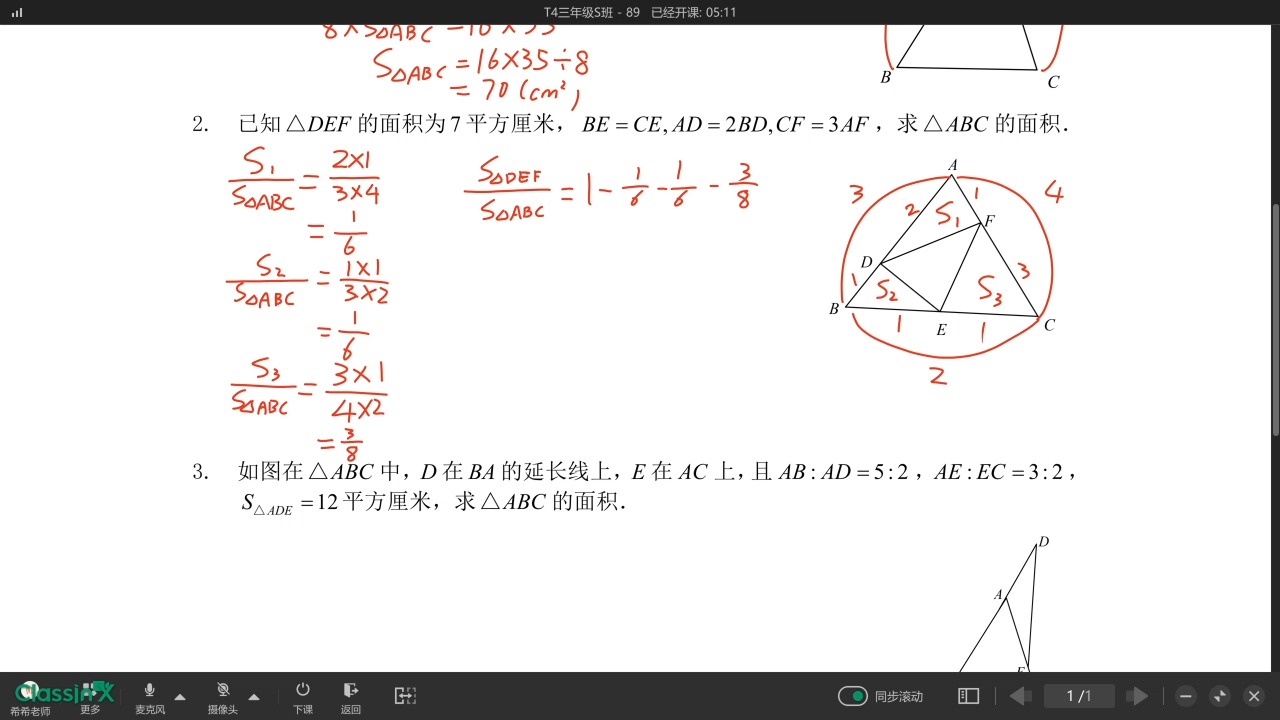 T4三年级S班 - 89 已经开课: 05:11
8×S△ABC = 16×35
S△ABC = 16×35÷8
= 70 (cm²)
B
C
2. 已知△DEF的面积为7平方厘米，BE=CE, AD=2BD, CF=3AF，求△ABC的面积．
S₁/S△ABC = 2×1/3×4
= 1/6
S₂/S△ABC = 1×1/3×2
= 1/6
S₃/S△ABC = 3×1/4×2
= 3/8
S△DEF/S△ABC = 1 - 1/6 - 1/6 - 3/8
A
3
4
2
1
S₁
F
D
3
1
S₂
S₃
B
1
E
1
C
2
3. 如图在△ABC中，D在BA的延长线上，E在AC上，且AB:AD=5:2，AE:EC=3:2，
S△ADE=12平方厘米，求△ABC的面积．
D
A
E
ClassIn X
希希老师
更多
麦克风
摄像头
下课
返回
同步滚动
1/1